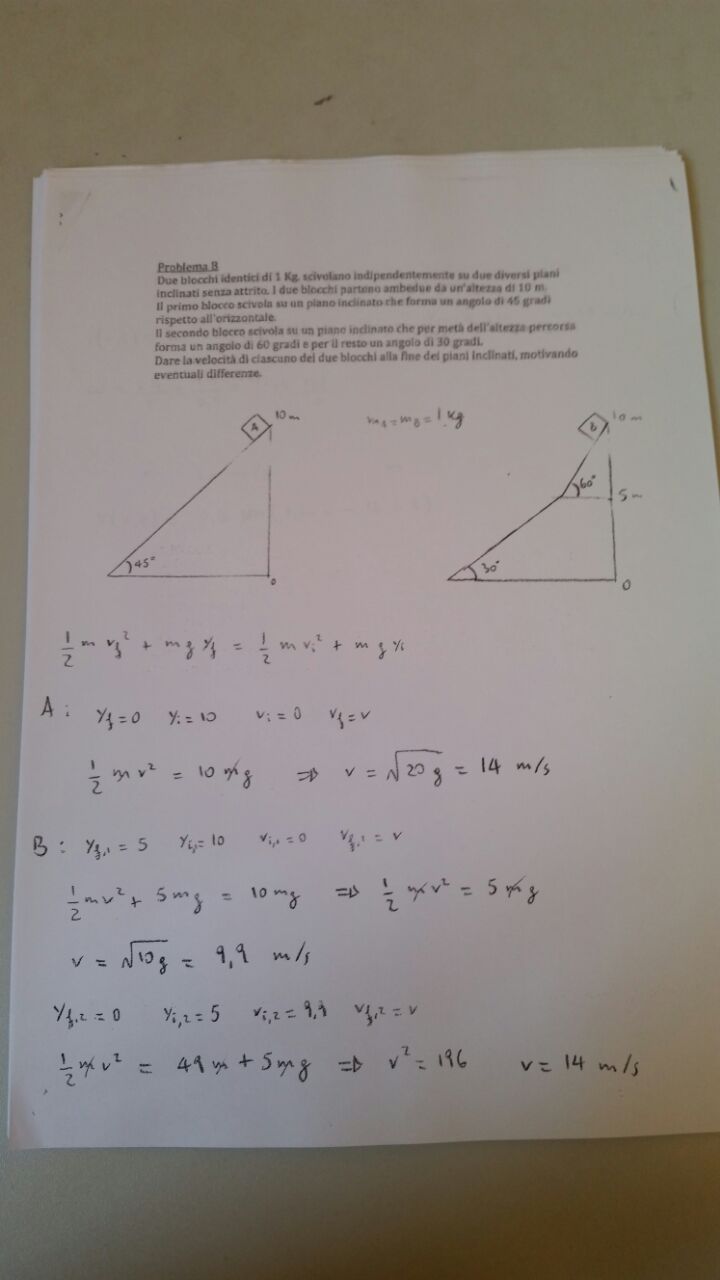 Problema B
Due blocchi identici di 1 Kg. scivolano indipendentemente su due diversi piani
inclinati senza attrito. I due blocchi partono ambedue da un'altezza di 10 m.
Il primo blocco scivola su un piano inclinato che forma un angolo di 45 gradi
rispetto all'orizzontale.
Il secondo blocco scivola su un piano inclinato che per metà dell'altezza percorsa
forma un angolo di 60 gradi e per il resto un angolo di 30 gradi.
Dare la velocità di ciascuno dei due blocchi alla fine dei piani inclinati, motivando
eventuali differenze.
A 10 m m_A = m_B = 1 Kg B 10 m
60° 5 m
45° 0 30° 0
1/2 m v_f² + m g y_f = 1/2 m v_i² + m g y_i
A: y_f = 0 y_i = 10 v_i = 0 v_f = v
1/2 m v² = 10 m g ⇒ v = √20 g = 14 m/s
B: y_f,1 = 5 y_i,1 = 10 v_i,1 = 0 v_f,1 = v
1/2 m v² + 5 m g = 10 m g ⇒ 1/2 m v² = 5 m g
v = √10 g = 9,9 m/s
y_f,2 = 0 y_i,2 = 5 v_i,2 = 9,9 v_f,2 = v
1/2 m v² = 49 m + 5 m g ⇒ v² = 196 v = 14 m/s